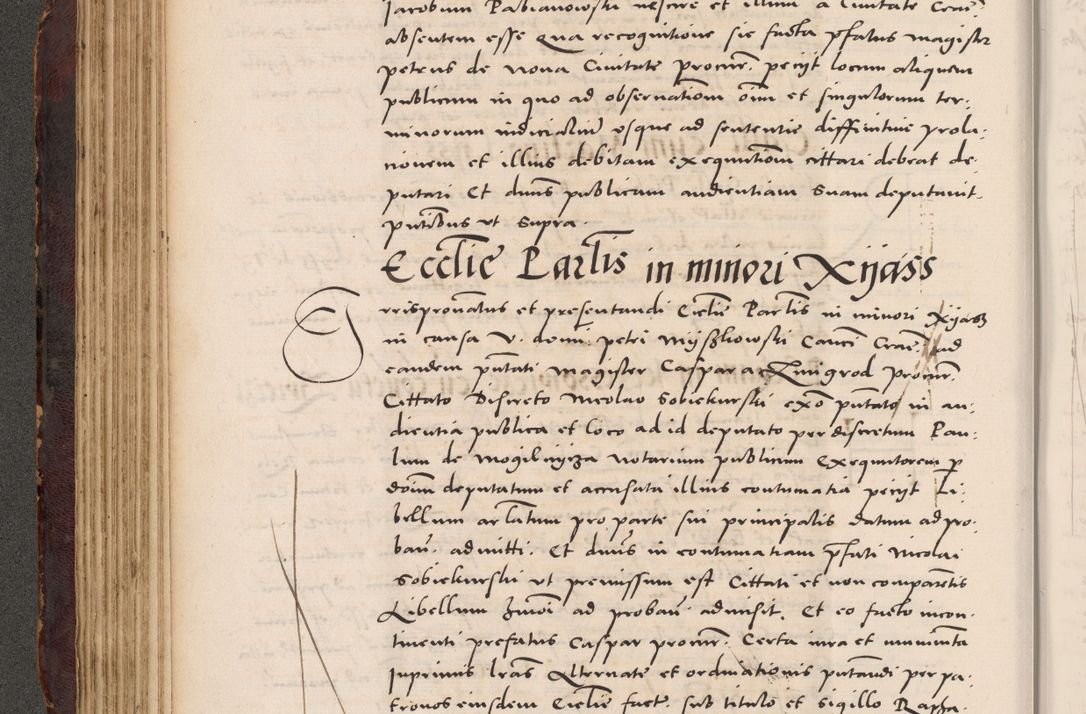 Jacobum Pabianowski nescire et illum a Civitate Crac̃
absentem esse Qua recognitione sic facta p̃fatus magistr
petrus de nova Civitate procur̃. peciit locum aliquem
publicum in quo ad observatiom̃ om̃ et singulorum ter:
minorum iudicialiũ usque ad sententie diffinitive prola:
cionem et illius debitam exequutiom̃ cittari debeat de
putari Et dm̃s publicam audientiam Suam deputavit
pn̄tibus ut Supra.
Ecctie Partis in minori Xijass
Irrispronatus et presentandi Ectie Partis in minori Xijass
in causa V. domi petri Myszkowski Canci Crac̃ ad
eandem pn̄tati Magister Caspar a Zmigrod Procur̃.
Cittato Discreto Nicolao Sobiekurski ex̃o pn̄tato in au:
dientia publica et Loco ad id deputato per discretum Pau:
lum de Mogilnicza Notarium publicum Exequutorem p
dom̃ deputatum et accusata illius contumatia peciit Li:
bellum arlatum pro parte sui principalis datum ad pro:
bañ. admitti. Et dm̃s in contumatiam p̃fati Nicolai
Sobiekurski ut premissum est Cittati et non compar̃tis
Libellum hm̃oi ad probañ admisit. Et eo facto incon:
tinenti prefatus Caspar procur̃. Certa iura et munim̃ta
Inprimis lr̃as Alternate et ordinationis pn̄tandi per pa:
tronos eiusdem Ectie fact̃. sub titulo et sigillo Rapha: